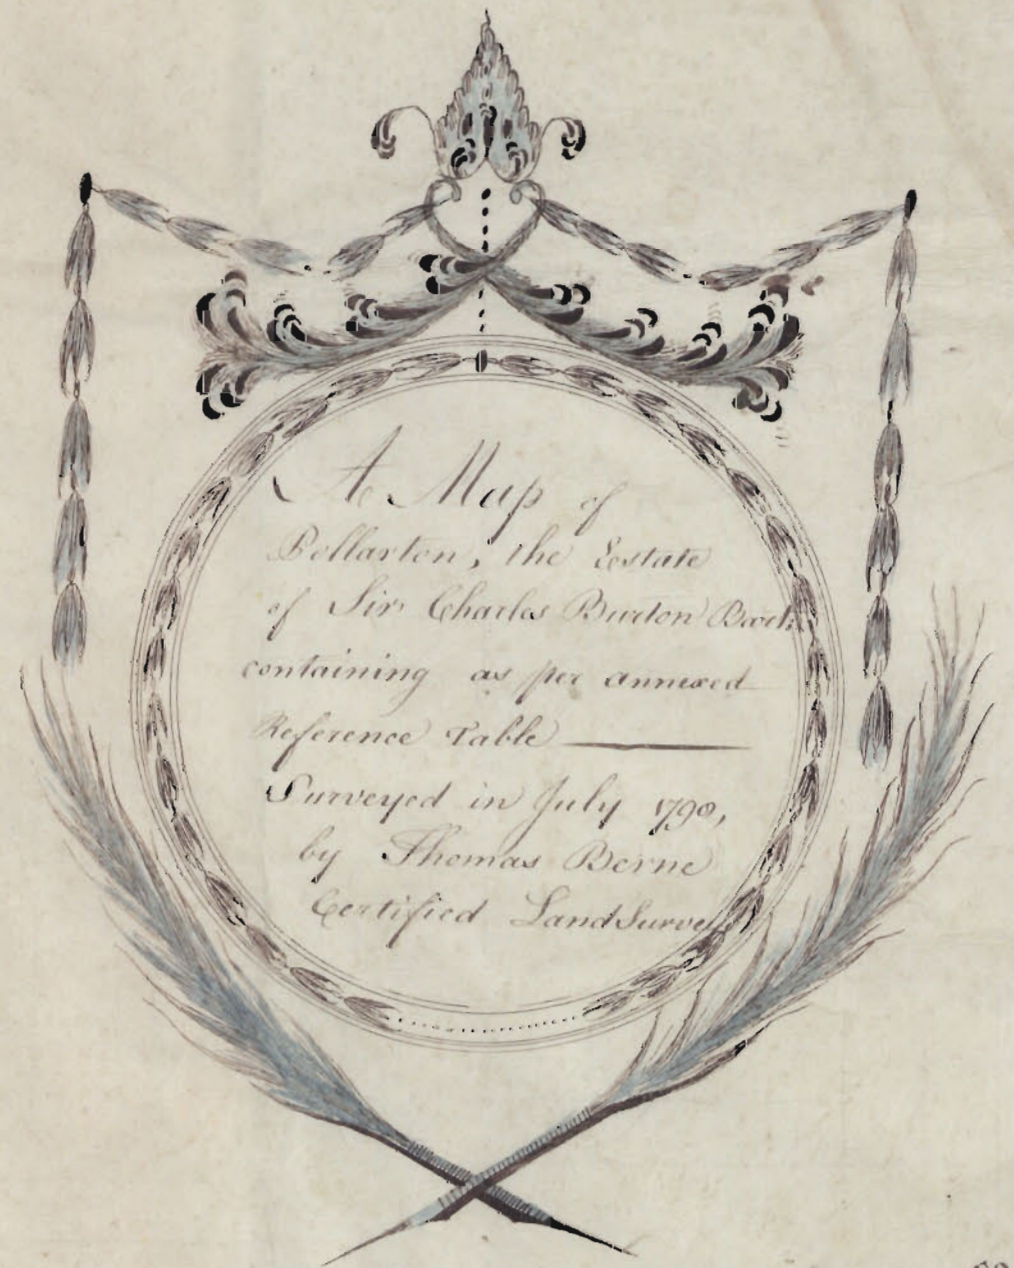 A Map of
Pollarton, the Estate
of Sir Charles Burton Bart
containing as per annexed
Reference Table
Surveyed in July 1790,
by Thomas Berne
Certified Land Surve